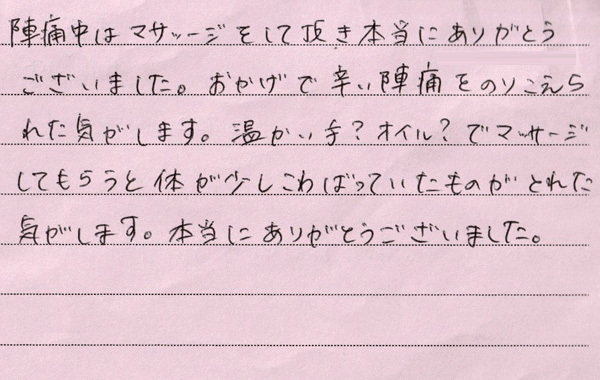 陣痛中はマサッージをして頂き本当にありがとう
ございました。おかげで辛い陣痛をのりこえら
れた気がします。温かい手?オイル?でマッサージ
してもらうと体が少しこわばっていたものがとれた
気がします。本当にありがとうございました。